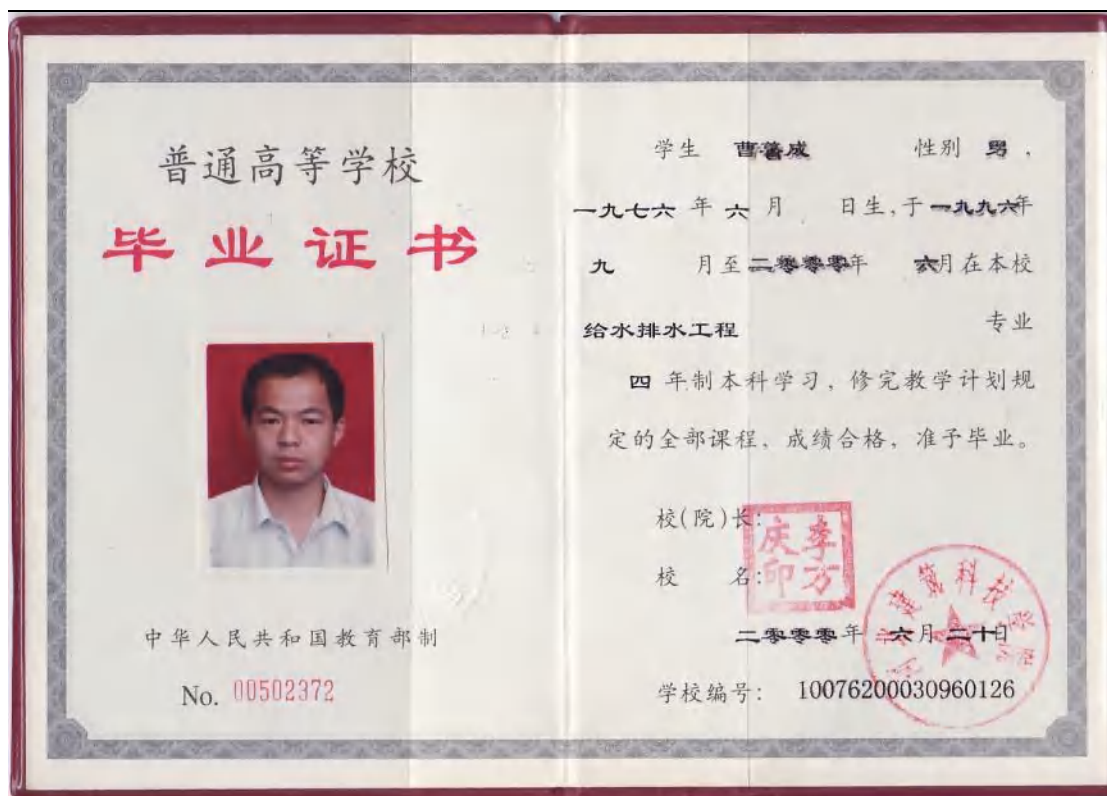 普通高等学校
毕业证书
中华人民共和国教育部制
No. 00502372
学生 曹善成 性别 男，
一九七六 年 六 月 日生，于 一九九六年
九 月至 二零零零年 六月在本校
给水排水工程 专业
四 年制本科学习，修完教学计划规
定的全部课程，成绩合格，准予毕业。
校(院)长:
李万庆印
校 名:
河北建筑科技学院
二零零零年 六月 二十日
学校编号: 10076200030960126